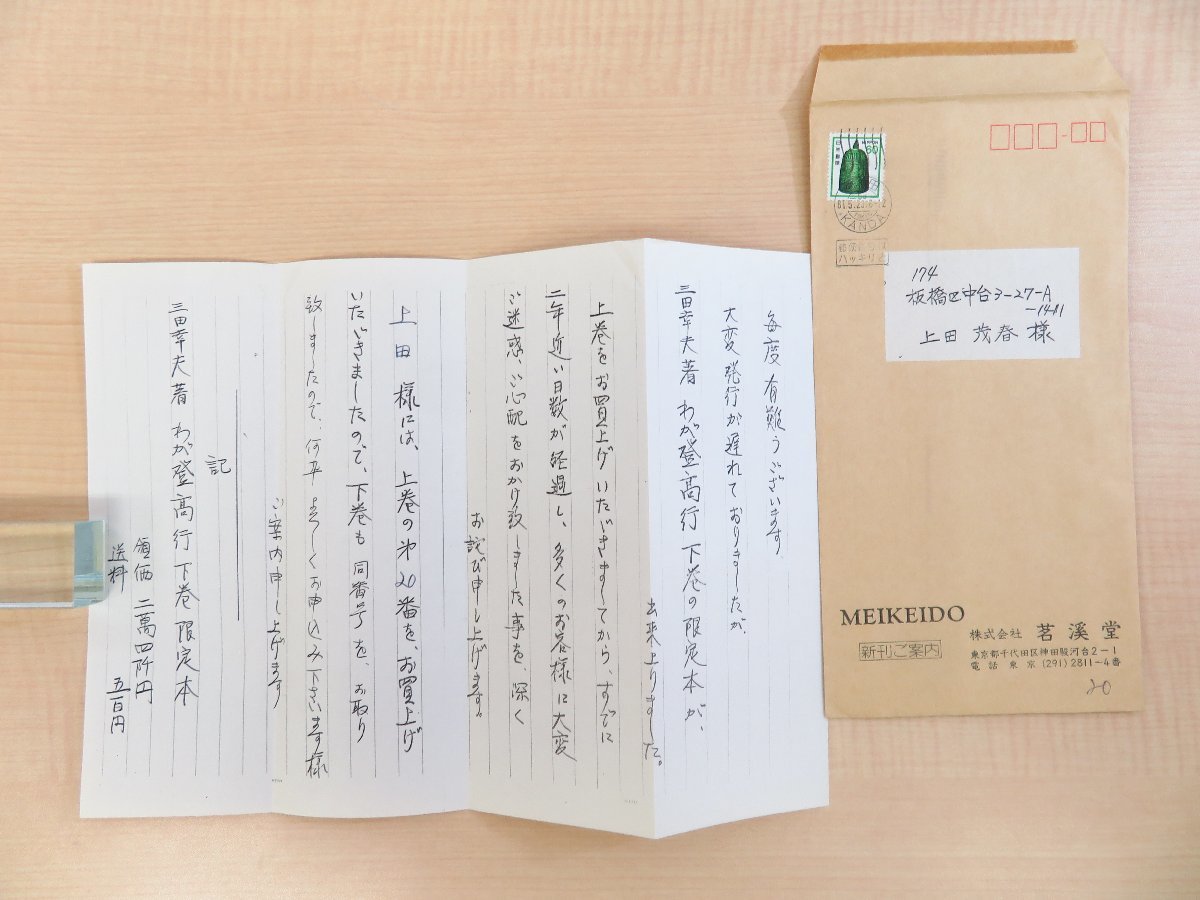 毎度有難うございます
大変発行が遅れておりましたが、
三田幸夫著 わが登高行 下巻の限定本が、
出来上りました。
上巻をお買上げいたゞきましてから、すでに
二年近い日数が経過し、多くのお客様に大変
ご迷惑、ご心配をおかけ致しました事を、深く
お詫び申し上げます。
上田 様には、上巻の㐧20番を、お買上げ
いたゞきましたので、下巻も同番号を、お取り
致しましたので、何卒よろしくお申込み下さいます様
ご案内申し上げます
記
三田幸夫著 わが登高行 下巻 限定本
領価 二萬四阡円
送料 五百円
日本郵便
NIPPON
60
61.5.2
KANDA
ハッキリと
174
板橋区中台3-27-A
-1411
上田 茂春 様
MEIKEIDO
新刊ご案内
株式会社 茗溪堂
東京都千代田区神田駿河台2-1
電話 東京 (291) 2811~4番
20